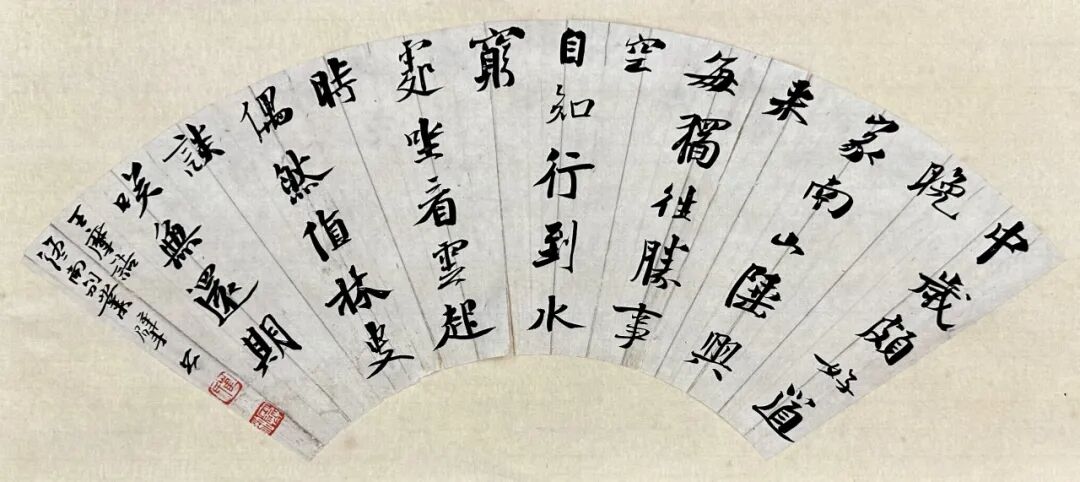 中歲頗好道
晚
家南山陲興
来
每獨往勝事
空
自知行到水
窮
處坐看雲起
時
偶然值林叟
談
咲無還期
王摩詰
終南別業